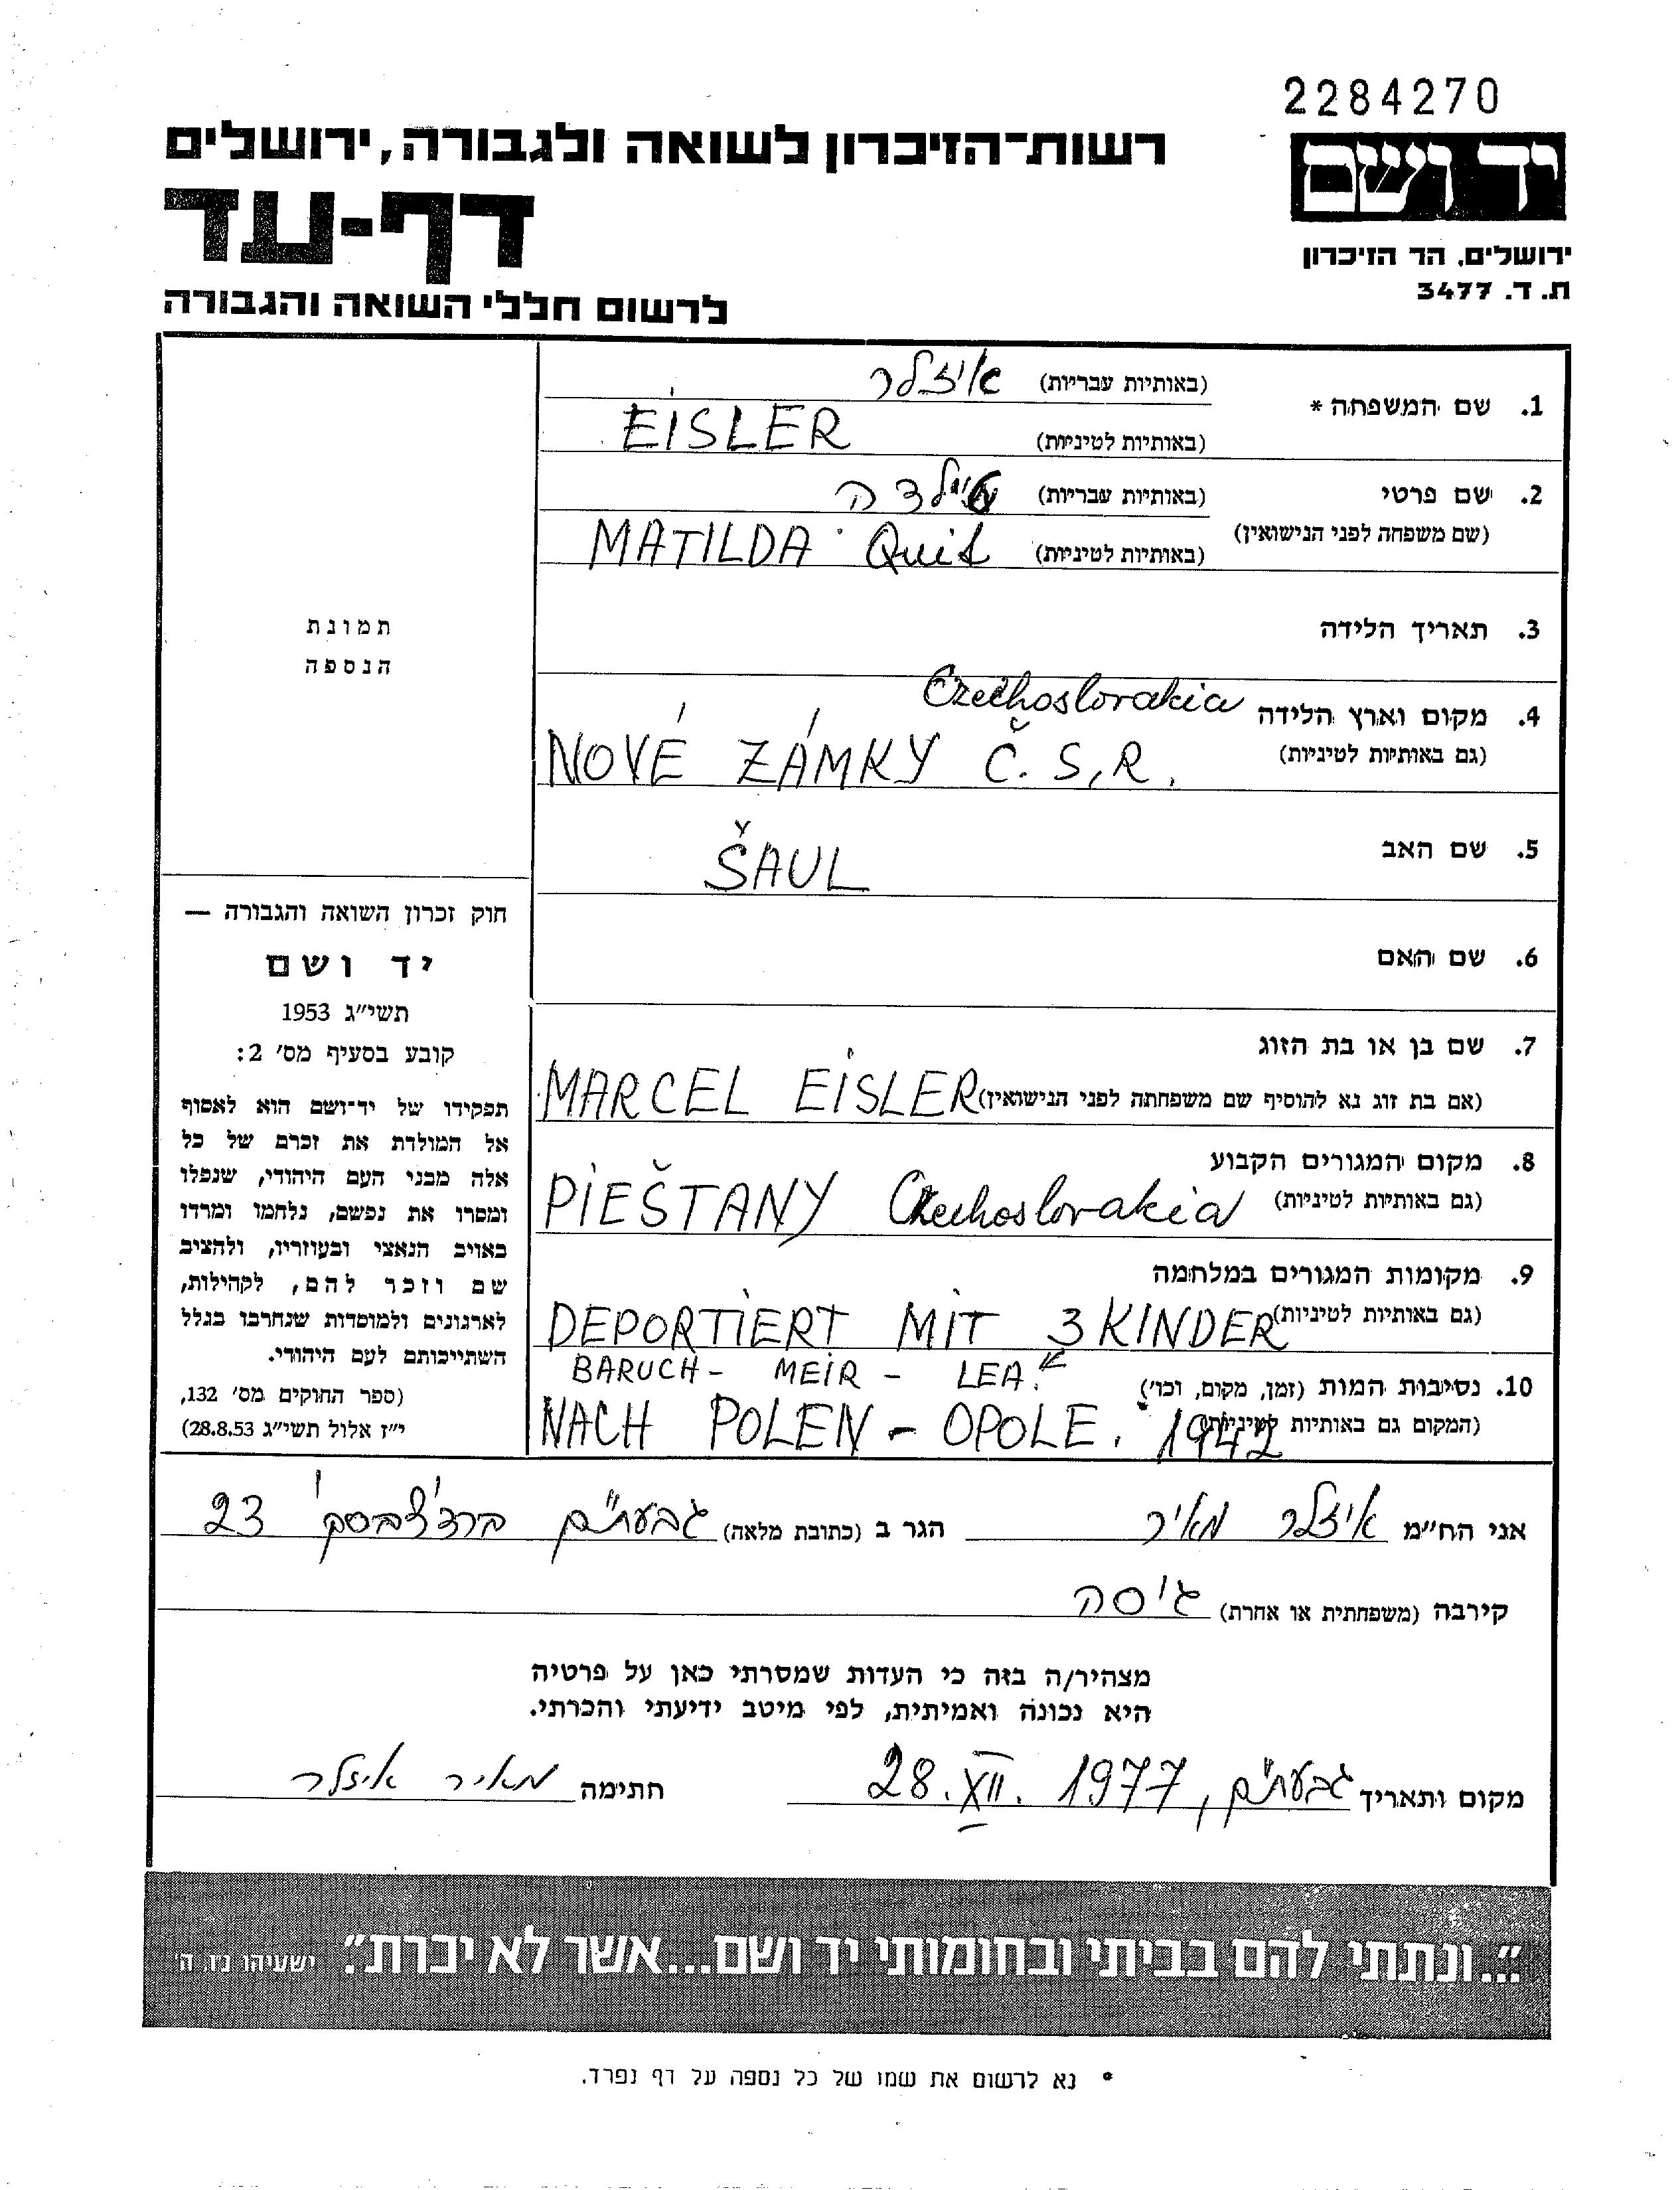 2284270
יד ושם
ירושלים, הר הזיכרון
ת. ד. 3477
רשות־הזיכרון לשואה ולגבורה, ירושלים
דף-עד
לרשום חללי השואה והגבורה
1. שם המשפחה * (באותיות עבריות) איזלר
(באותיות לטיניות) EISLER
2. שם פרטי (באותיות עבריות) טילדה
(שם משפחה לפני הנישואין) (באותיות לטיניות) MATILDA
3. תאריך הלידה
4. מקום וארץ הלידה Czechoslovakia
(גם באותיות לטיניות) NOVÉ ZÁMKY Č.S.R.
5. שם האב ŠAUL
6. שם האם
7. שם בן או בת הזוג
(אם בת זוג נא להוסיף שם משפחתה לפני הנישואין) MARCEL EISLER
8. מקום המגורים הקבוע
(גם באותיות לטיניות) PIEŠTANY Czechoslovakia
9. מקומות המגורים במלחמה
(גם באותיות לטיניות) DEPORTIERT MIT 3 KINDER
BARUCH - MEIR - LEA.
10. נסיבות המות (זמן, מקום, וכו')
(המקום גם באותיות לטיניות) NACH POLEN - OPOLE. 1942
תמונת
הנספה
חוק זכרון השואה והגבורה —
יד ושם
תשי״ג 1953
קובע בסעיף מס׳ 2:
תפקידו של יד־ושם הוא לאסוף
אל המולדת את זכרם של כל
אלה מבני העם היהודי, שנפלו
ומסרו את נפשם, נלחמו ומרדו
באויב הנאצי ובעוזריו, ולהציב
שם וזכר להם, לקהילות,
לארגונים ולמוסדות שנחרבו בגלל
השתייכותם לעם היהודי.
(ספר החוקים מס׳ 132,
י״ז אלול תשי״ג 28.8.53)
אני הח״מ איזלר מאיר הגר ב (כתובת מלאה) גבעתיים 23
קירבה (משפחתית או אחרת) גיסה
מצהיר/ה בזה כי העדות שמסרתי כאן על פרטיה
היא נכונה ואמיתית, לפי מיטב ידיעתי והכרתי.
מקום ותאריך גבעתיים, 28.XII.1977 חתימה מאיר איזלר
״...ונתתי להם בביתי ובחומותי יד ושם...אשר לא יכרת״. ישעיהו נ״ו, ה׳
* נא לרשום את שמו של כל נספה על דף נפרד.